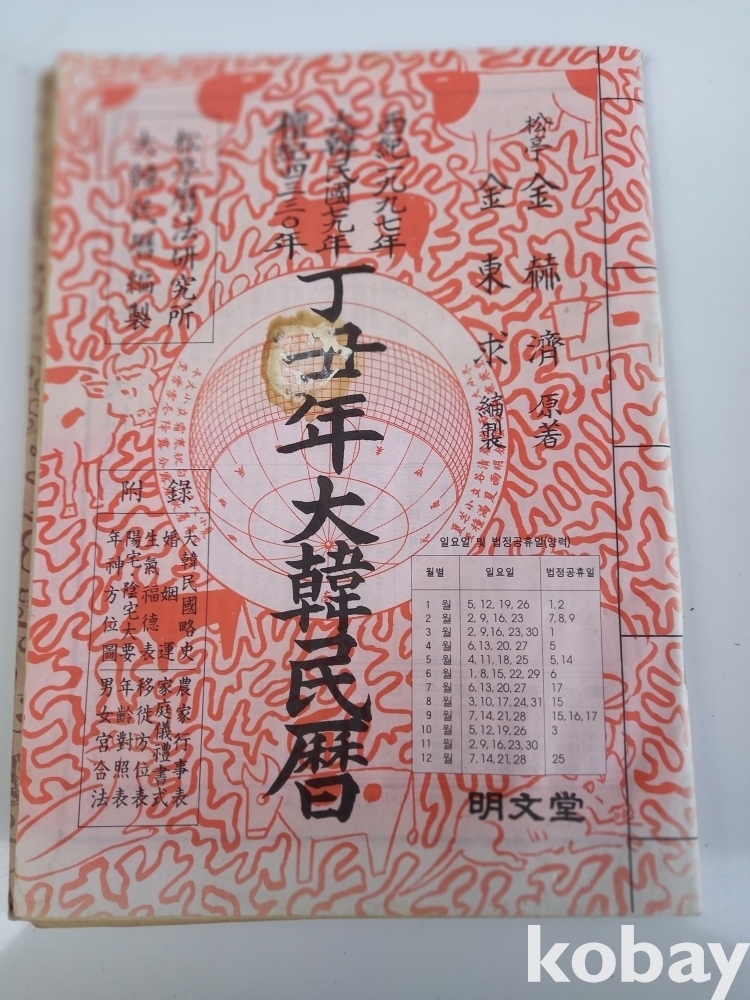 松亭 金赫濟 原著
金東求 編製
西紀一九九七年
大韓民國七九年
檀紀四三三〇年
丁丑年大韓民曆
松亭曆法研究所
大韓民曆編製
附錄
大韓民國略史
婚姻運
生氣福德表
陽宅陰宅大要
年神方位圖
農家行事表
家庭儀禮書式
移徙方位表
年齡對照表
男女宮合法
일요일 및 법정공휴일(양력)
월별 일요일 법정공휴일
1 월 5, 12, 19, 26 1,2
2 월 2, 9, 16, 23 7,8,9
3 월 2, 9,16, 23, 30 1
4 월 6,13, 20, 27 5
5 월 4, 11, 18, 25 5, 14
6 월 1, 8, 15, 22, 29 6
7 월 6,13, 20, 27 17
8 월 3, 10, 17, 24, 31 15
9 월 7, 14, 21, 28 15, 16, 17
10 월 5, 12, 19, 26 3
11 월 2, 9, 16, 23, 30
12 월 7, 14, 21, 28 25
明文堂
kobay